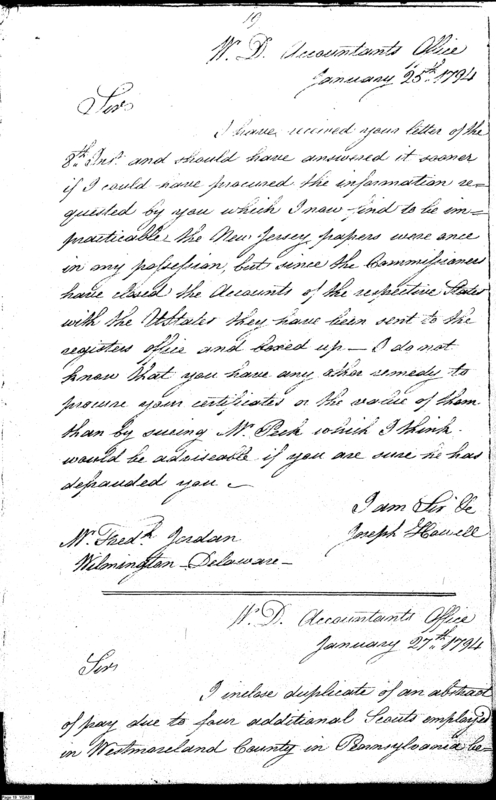 19
W. D. Accountants Office
January 25th. 1794
Sir
I have received your letter of the
8th. Inst. and should have answered it sooner
if I could have procured the information re=
quested by you which I now find to be im=
practicable, the New Jersey papers were once
in my possession, but since the Commissioners
have closed the Accounts of the respective States
with the UStates they have been sent to the
registers office and boxed up — I do not
know that you have any other remedy to
procure your certificates or the value of them
than by sueing Mr. Peck which I think
would be adviseable if you are sure he has
defrauded you —
I am Sir &c
Joseph Howell
Mr. Fredk. Jordan
Wilmington - Delaware -
W. D. Accountants Office
January 27th. 1794
Sir
I inclose duplicate of an abstract
of pay due to four additional Scouts employed
in Westmoreland County in Pennsylvania be=